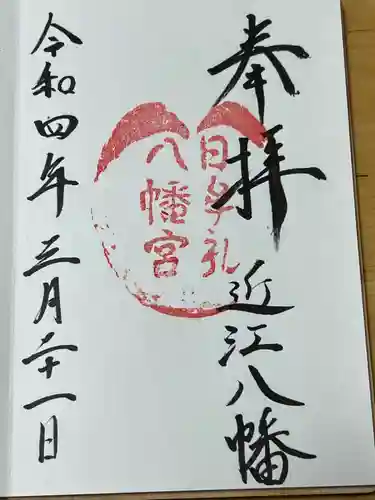 奉拝 近江八幡
日牟礼
八幡宮
令和四年三月二十一日